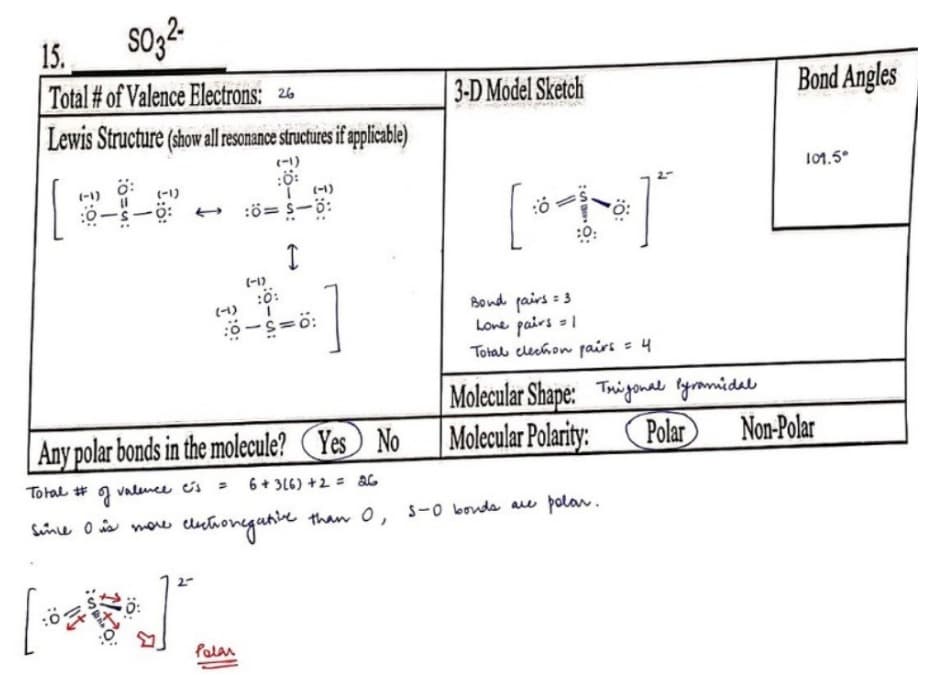 15. SO₃²⁻
Total # of Valence Electrons: 26
Lewis Structure (show all resonance structures if applicable)
(-1) :Ö: (-1) :Ö—S—Ö: ↔ (-1) :Ö: (-1) :Ö=S—Ö:
↕
(-1) (-1) :Ö: :Ö—S=Ö:
3-D Model Sketch
[:Ö=S̈—Ö: :Ö:]²⁻
Bond pairs = 3
Lone pairs = 1
Total electron pairs = 4
Bond Angles
109.5°
Molecular Shape: Trigonal Pyramidal
Any polar bonds in the molecule? Yes No
Molecular Polarity: Polar Non-Polar
Total # of valence e's = 6 + 3(6) + 2 = 26
Since O is more electronegative than O, S-O bonds are polar.
[:Ö=S̈—Ö: :Ö:]²⁻
Polar